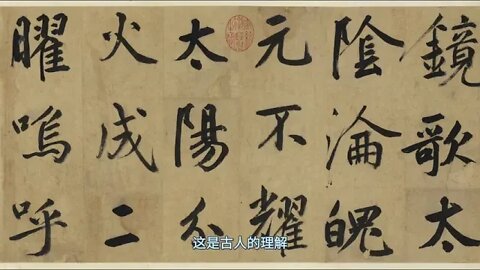 鏡歌太
陰淪魄
元不耀
太陽分
火成二
曜嗚呼
这是古人的理解